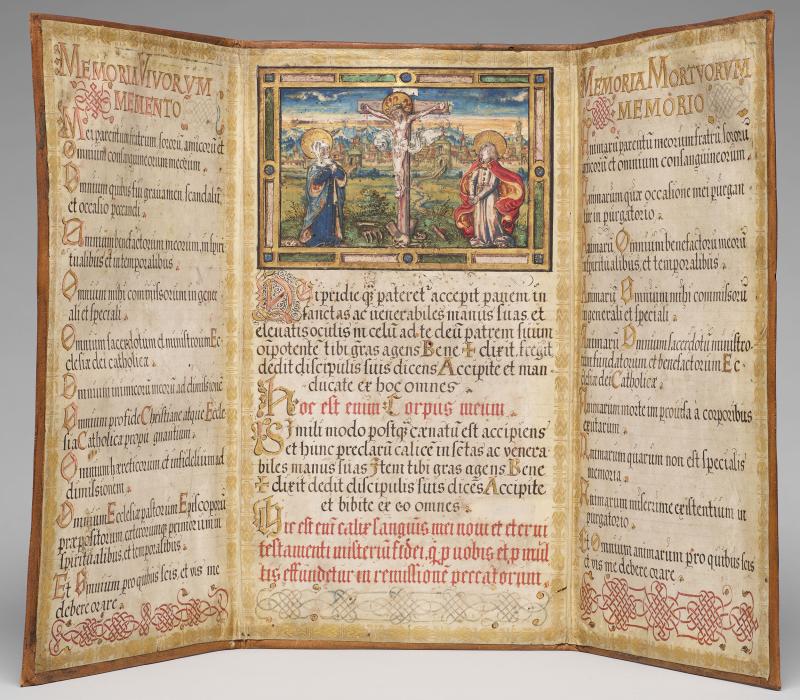 MEMORIA VIVORVM
MEMENTO
Mei parentum fratrum sororū, amicorū et
omnium consanguineorum meorum.
Omnium quibus fui gravamen, scandalū,
et occasio peccandi.
Omnium benefactorum meorum, in spiri
tualibus et in temporalibus.
Omnium mihi commissorum in gener
ali et speciali.
Omnium sacerdotum et ministrorum Ec
clesiæ dei catholicæ.
Omnium inimicorum meorū ad dimissionē
Omnium pro fide Christiane atque Eccle
sia Catholica propu gnantium.
Omnium hæreticorum et infidelium ad
dimissionem.
Omnium Ecclesiæ pastorum Episcoporū
præpositorum, cæterorumque
spiritualibus, et temporalibus.
Et Omnium pro quibus scis, et vis me
debere orare.
Qui pridie q̄ pateretʳ accepit panem in
sanctas ac venerabiles manus suas, et
elevatis oculis in celum ad te deū patrem suum
oīpotentē tibi grās agens Bene ✠ dixit, fregit
dedit discipulis suis dicens Accipite et man
ducate ex hoc omnes
hoc est enim Corpus meum.
Simili modo postq̄ cænatū est accipiens
et hunc preclarū calicē in sctas ac venera
biles manus suas Item tibi gras agens Bene
✠ dixit dedit discipulis suis dicēs Accipite
et bibite ex eo omnes
Hic est em̄ calix sanguīs mei novi et eterni
testamenti misteriū fidei, q̄ p vobis et p mul
tis effundetur in remissionē peccatorum.
MEMORIA MORTVORVM
MEMORIO
Animarū parentū meorum fratrū sororū
amicorū et omnium consanguineorum.
Animarum quæ occasione mei purgan
tur in purgatorio.
Animarū Omnium benefactorū meorū
spiritualibus, et temporalibus.
Animarū Omnium mihi commissorū
in generali et speciali.
Animarū Omnium sacerdotū ministro
rum fundatorum et benefactorum Ec
clesiæ dei Catholicæ.
Animarum morte improvisa à corporibus
exutarum.
Animarum quarum non est specialis
memoria.
Animarum miserrime existentium in
purgatorio.
Et Omnium animarum pro quibus scis
et vis me debere orare.